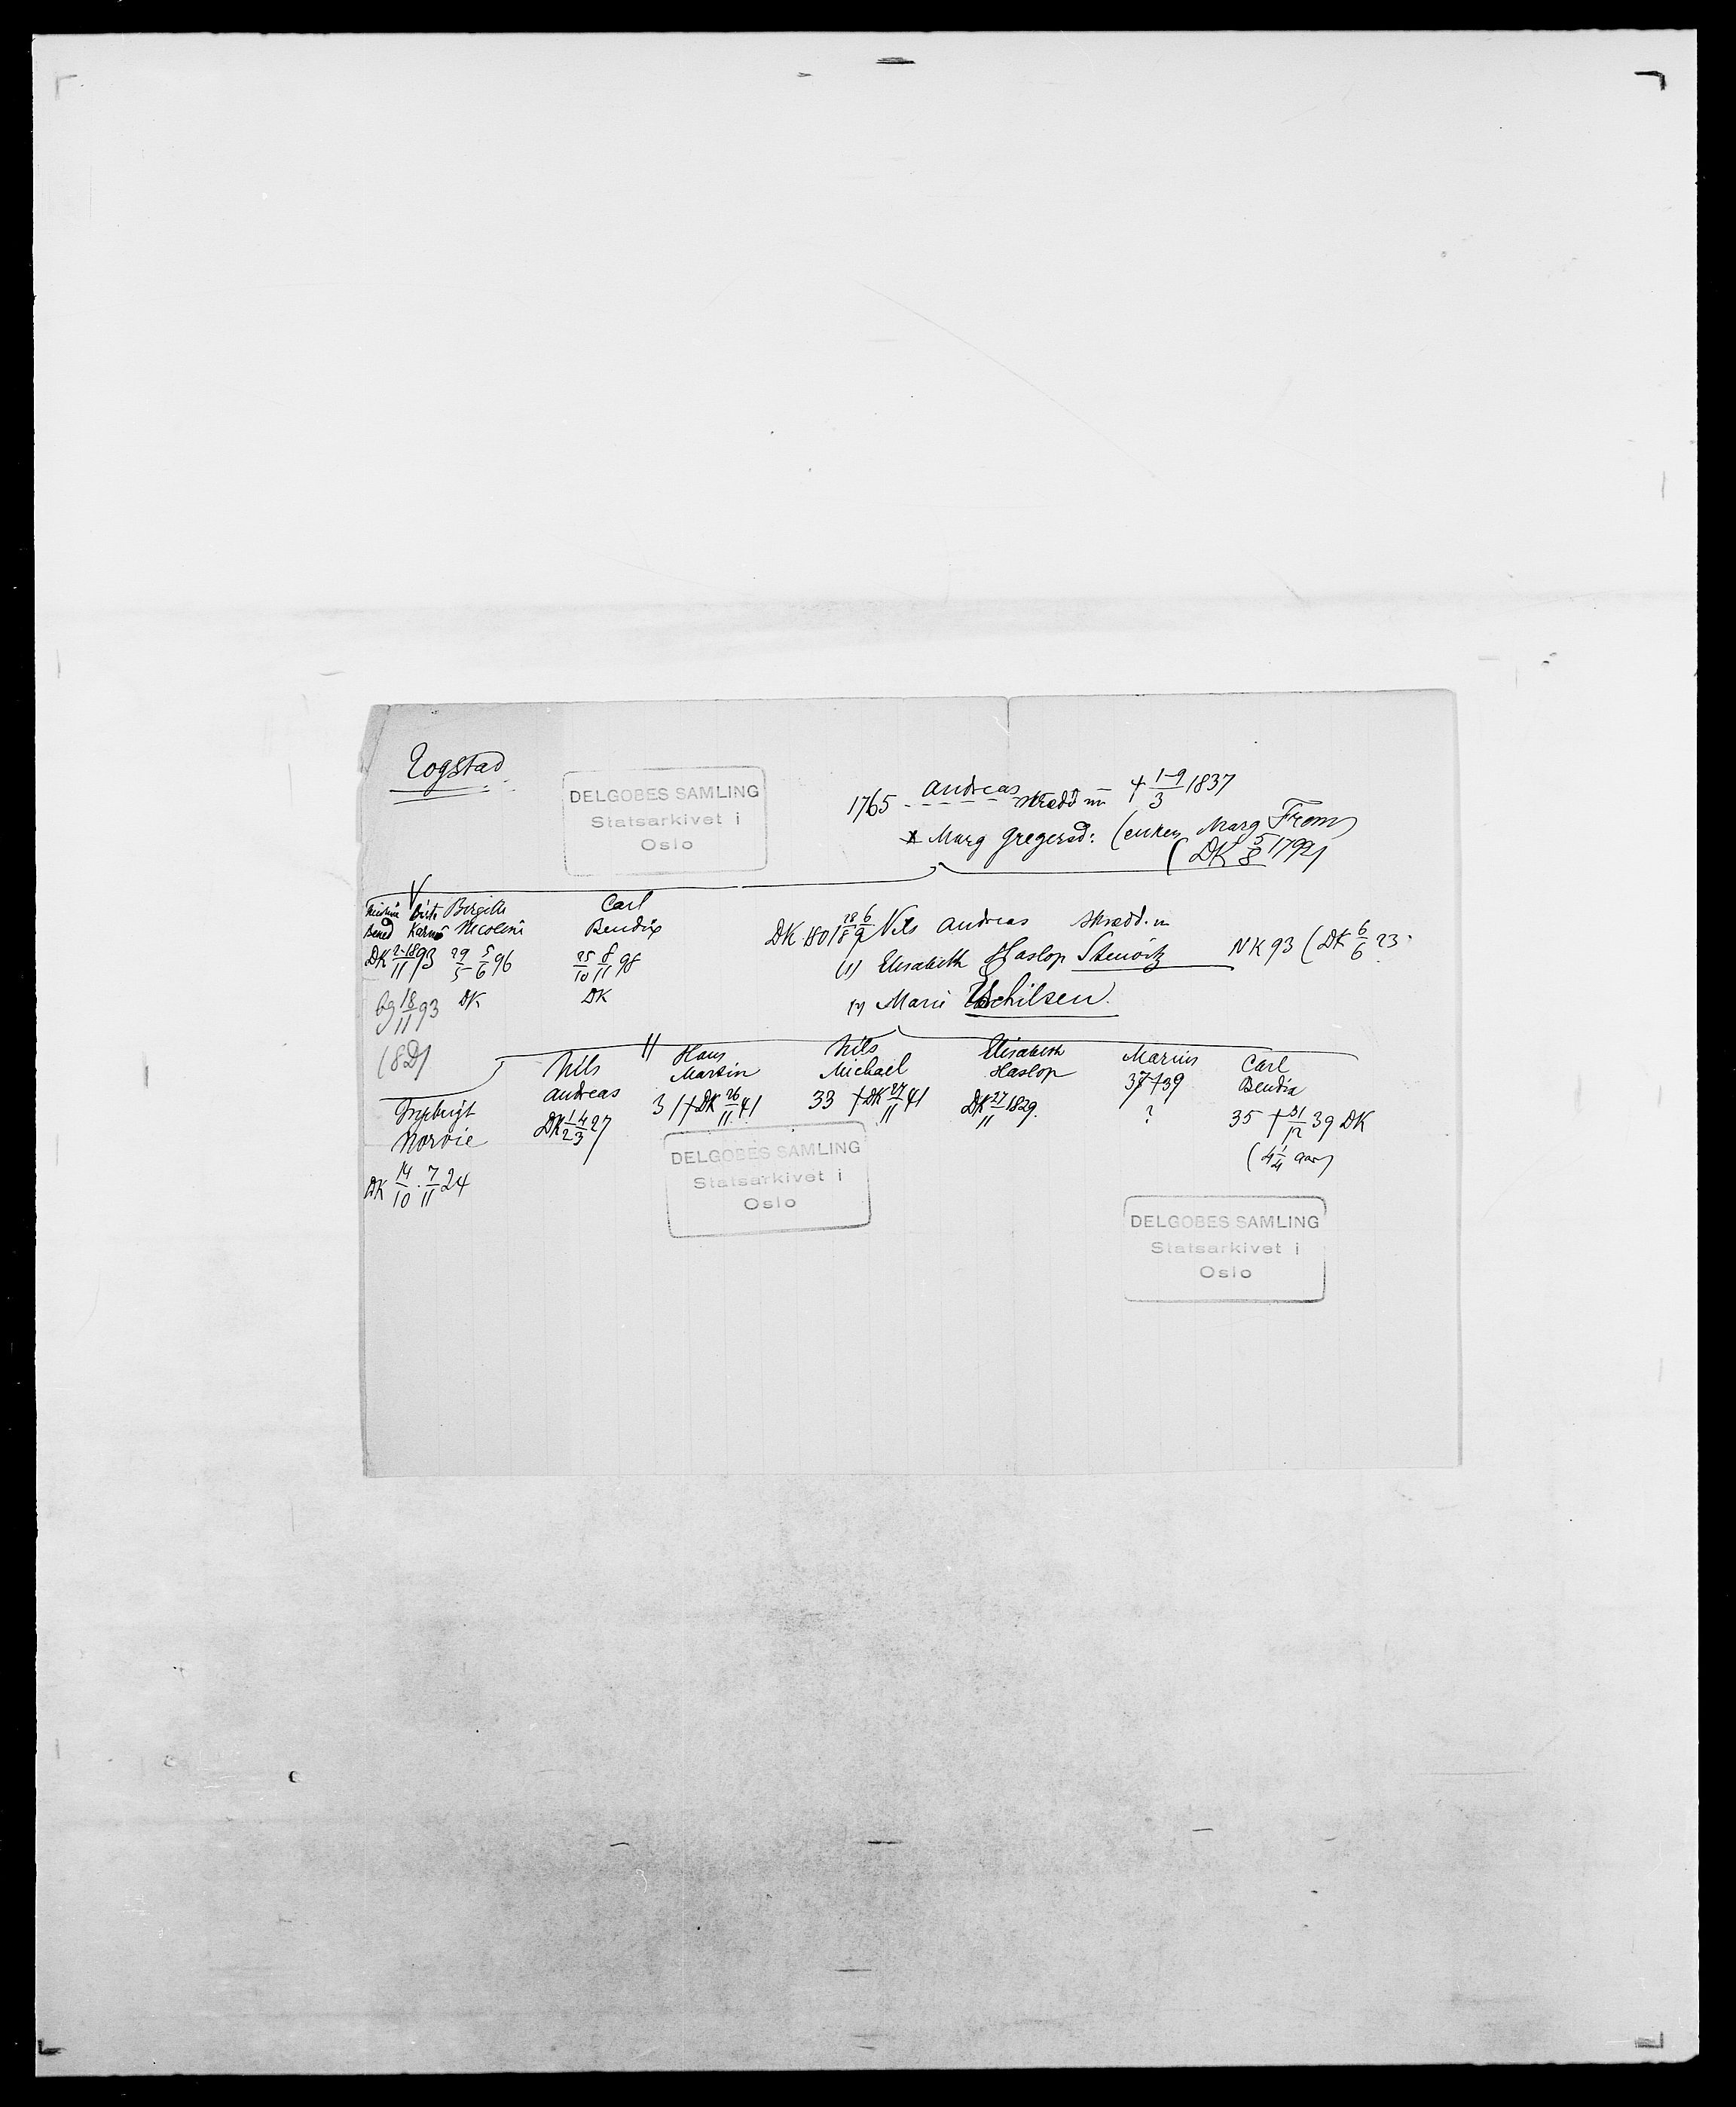 Rogstad
DELGOBES SAMLING
Statsarkivet i
Oslo
1765 - Andreas skredd m † 1-9/3 1837
x Marg Gregersd: (enken Marg From)
(DK 5/8 1792)
Birte Birgitte
Bened Karine Nicoline
DK 2-18/11 93 29/5 5/6 96
bg 18/11 93 DK
(8D)
Carl
Bendix
25/10 8/11 98
DK
DK 1801 18/8 6/9 Nils Andreas skredd. m
(1) Elisabeth Haslop Stenvitz NK 93 (DK 6/6 23.
(2) Marie Uchilsen.
Norvie
DK 14/10 . 7/11 24
Nils
Andreas
DK 1/2 4/3 27
Hans
Martin
31 † DK 26/11 41
Nils
Michael
33 † DK 27/11 41
Elisabeth
Haslop
DK 27/11 1829.
Marius
37 † 39
?
Carl
Bendix
35 † 31/12 39 DK
(4 1/4 aar)
DELGOBES SAMLING
Statsarkivet i
Oslo
DELGOBES SAMLING
Statsarkivet i
Oslo